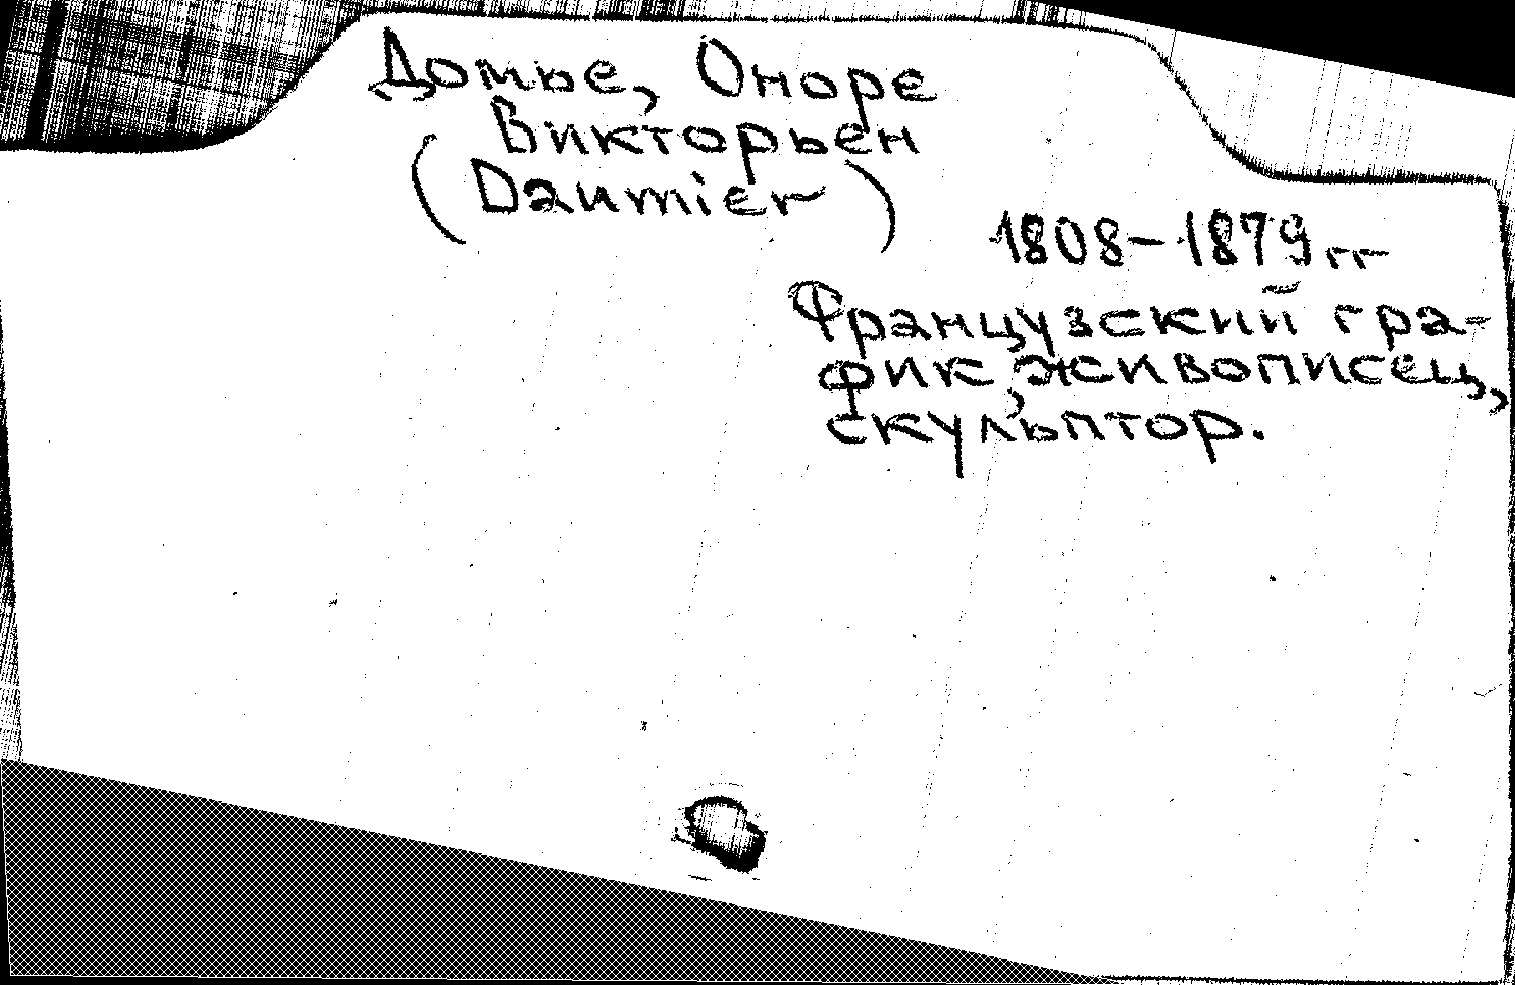 Домье, Оноре
Викторьен
(Daumier)
1808-1879 гг
Французский гра-
фик, живописец,
скульптор.